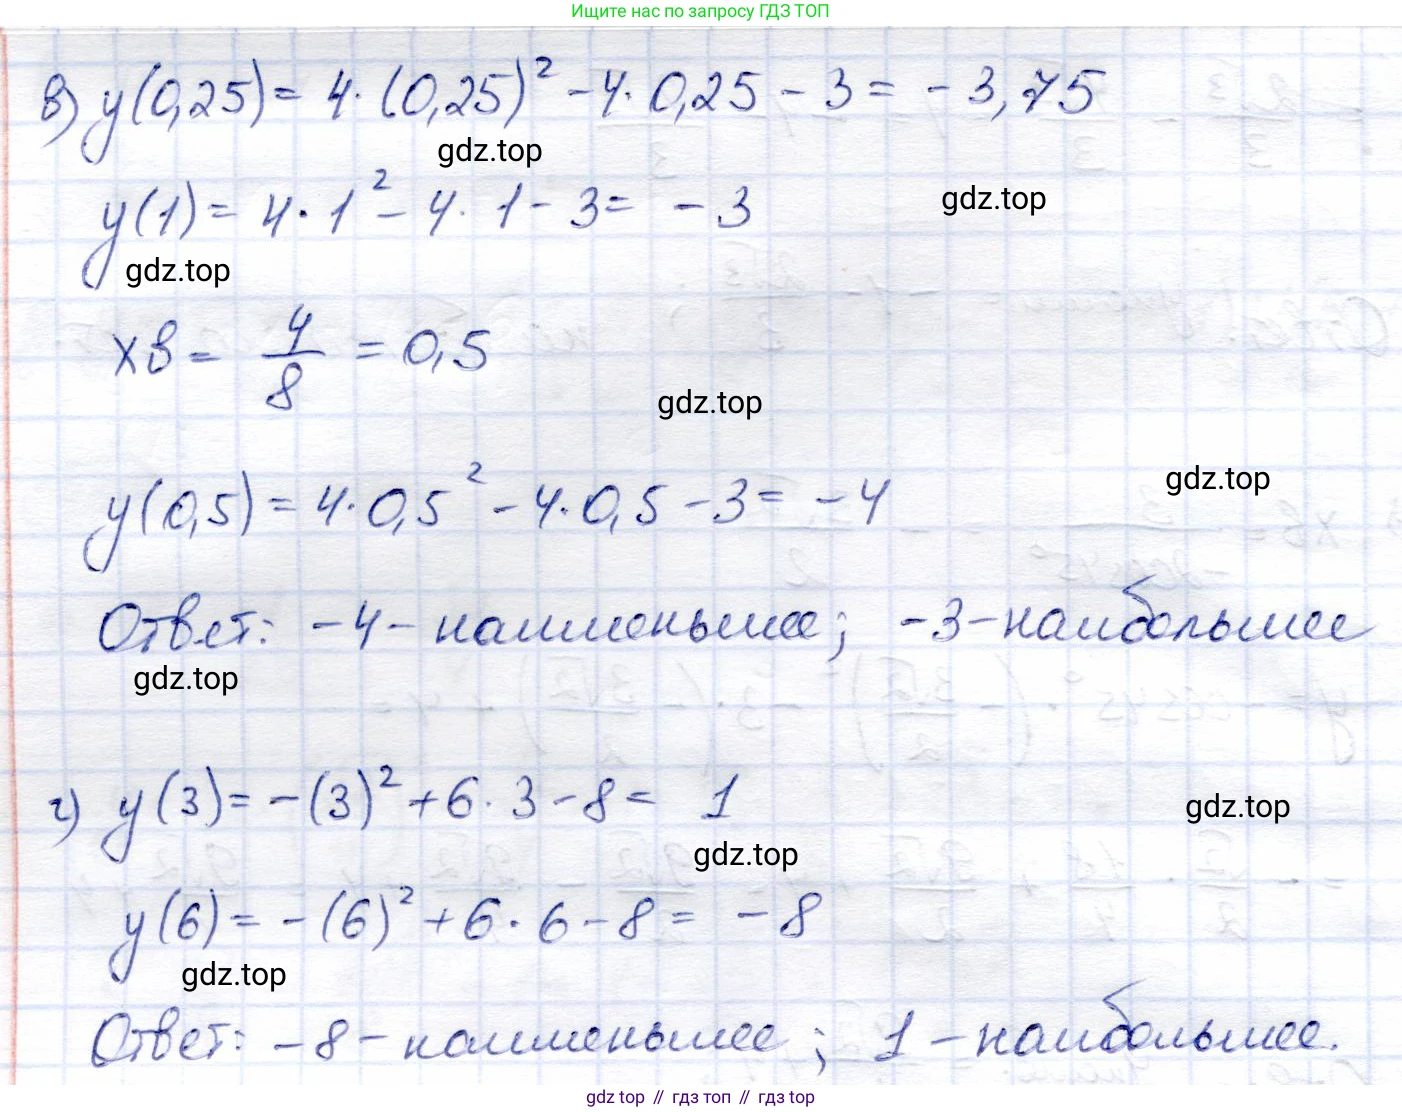 Ищите нас по запросу ГДЗ ТОП
в) y(0,25) = 4·(0,25)² - 4·0,25 - 3 = -3,75
gdz.top
y(1) = 4·1² - 4·1 - 3 = -3
gdz.top
gdz.top
xв = 4/8 = 0,5
gdz.top
y(0,5) = 4·0,5² - 4·0,5 - 3 = -4
gdz.top
Ответ: -4 - наименьшее; -3 - наибольшее
gdz.top
г) y(3) = -(3)² + 6·3 - 8 = 1
gdz.top
gdz.top
y(6) = -(6)² + 6·6 - 8 = -8
gdz.top
Ответ: -8 - наименьшее; 1 - наибольшее.
gdz top // гдз топ // gdz top